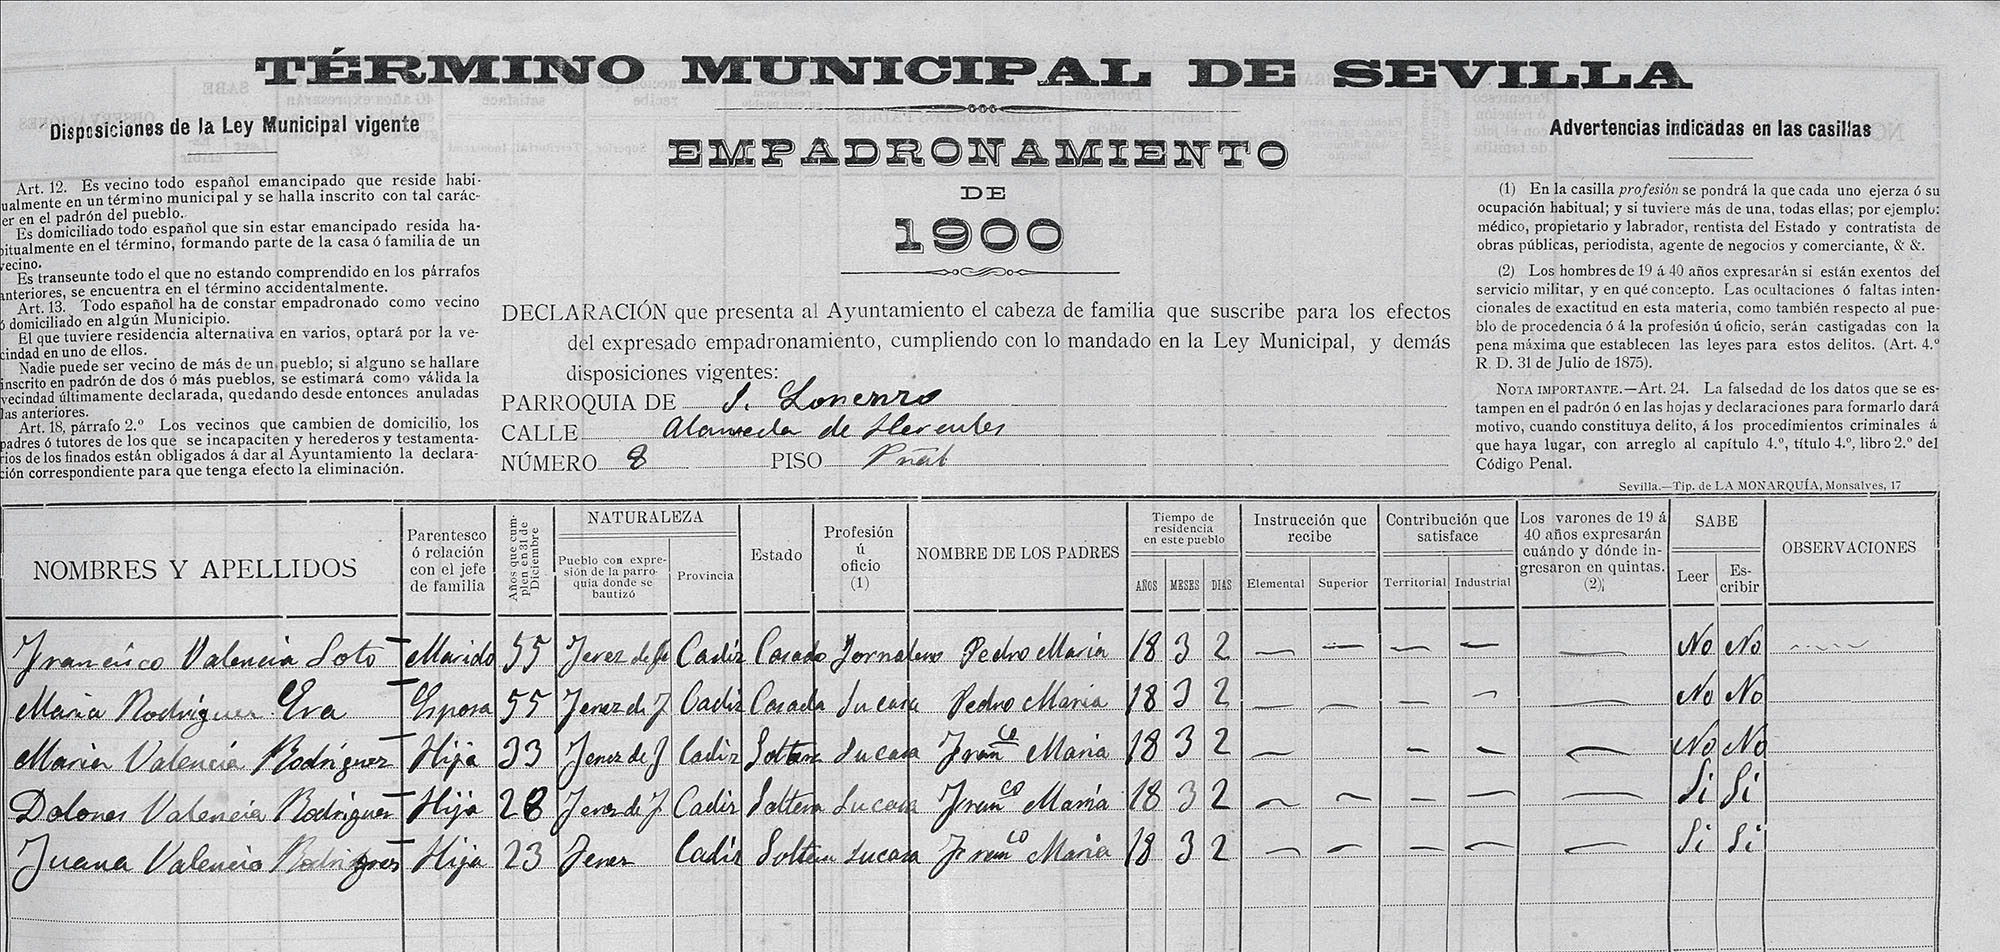 TÉRMINO MUNICIPAL DE SEVILLA
EMPADRONAMIENTO
DE
1900
Disposiciones de la Ley Municipal vigente
Art. 12. Es vecino todo español emancipado que reside habi-
ualmente en un término municipal y se halla inscrito con tal carác-
er en el padrón del pueblo.
Es domiciliado todo español que sin estar emancipado resida ha-
bitualmente en el término, formando parte de la casa ó familia de un
vecino.
Es transeunte todo el que no estando comprendido en los párrafos
anteriores, se encuentra en el término accidentalmente.
Art. 13. Todo español ha de constar empadronado como vecino
ó domiciliado en algún Municipio.
El que tuviere residencia alternativa en varios, optará por la ve-
cindad en uno de ellos.
Nadie puede ser vecino de más de un pueblo; si alguno se hallare
inscrito en padrón de dos ó más pueblos, se estimará como válida la
vecindad últimamente declarada, quedando desde entonces anuladas
las anteriores.
Art. 18, párrafo 2.º Los vecinos que cambien de domicilio, los
padres ó tutores de los que se incapaciten y herederos y testamenta-
rios de los finados están obligados á dar al Ayuntamiento la declara-
ción correspondiente para que tenga efecto la eliminación.
DECLARACIÓN que presenta al Ayuntamiento el cabeza de familia que suscribe para los efectos
del expresado empadronamiento, cumpliendo con lo mandado en la Ley Municipal, y demás
disposiciones vigentes:
PARROQUIA DE S. Lorenzo
CALLE Alameda de Hercules
NÚMERO 8 PISO Pñal
Advertencias indicadas en las casillas
(1) En la casilla profesión se pondrá la que cada uno ejerza ó su
ocupación habitual; y si tuviere más de una, todas ellas; por ejemplo:
médico, propietario y labrador, rentista del Estado y contratista de
obras públicas, periodista, agente de negocios y comerciante, & &.
(2) Los hombres de 19 á 40 años expresarán si están exentos del
servicio militar, y en qué concepto. Las ocultaciones ó faltas inten-
cionales de exactitud en esta materia, como también respecto al pue-
blo de procedencia ó á la profesión ú oficio, serán castigadas con la
pena máxima que establecen las leyes para estos delitos. (Art. 4.º
R. D. 31 de Julio de 1875).
NOTA IMPORTANTE.—Art. 24. La falsedad de los datos que se es-
tampen en el padrón ó en las hojas y declaraciones para formarlo dará
motivo, cuando constituya delito, á los procedimientos criminales á
que haya lugar, con arreglo al capítulo 4.º, título 4.º, libro 2.º del
Código Penal.
Sevilla.—Tip. de LA MONARQUÍA, Monsalves, 17
NOMBRES Y APELLIDOS
Parentesco
ó relación
con el jefe
de familia
Años que cum-
plen en 31 de
Diciembre
NATURALEZA
Pueblo con expre-
sión de la parro-
quia donde se
bautizó
Provincia
Estado
Profesión
ú
oficio
(1)
NOMBRE DE LOS PADRES
Tiempo de
residencia
en este pueblo
AÑOS MESES DIAS
Instrucción que
recibe
Elemental Superior
Contribución que
satisface
Territorial Industrial
Los varones de 19 á
40 años expresarán
cuándo y dónde in-
gresaron en quintas.
(2)
SABE
Leer
Es-
cribir
OBSERVACIONES
Francisco Valencia Soto Marido 55 Jerez de la Cadiz Casado Jornalero Pedro Maria 18 3 2 — — — — — No No
Maria Rodriguez Eva Esposa 55 Jerez de J Cadiz Casada Su casa Pedro Maria 18 3 2 — — — — — No No
Maria Valencia Rodriguez Hija 33 Jerez de J Cadiz Soltera Su casa Franco Maria 18 3 2 — — — — No No
Dolores Valencia Rodriguez Hija 28 Jerez de J Cadiz Soltera Su casa Franco Maria 18 3 2 — — — — — Si Si
Juana Valencia Rodriguez Hija 23 Jerez Cadiz Soltera su casa Franco Maria 18 3 2 — — — — — Si Si